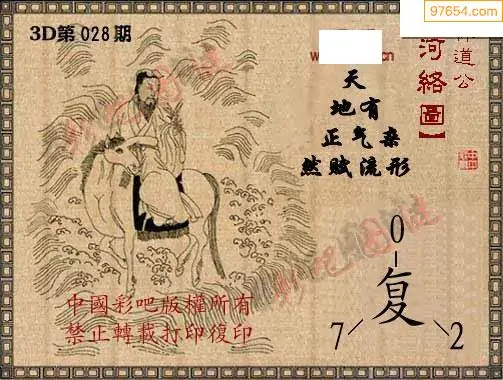 97654.com
3D第028期
道公
河络圖】
天
地有
正气杂
然赋流形
0
复
7 2
中國彩吧版權所有
禁止轉載打印復印